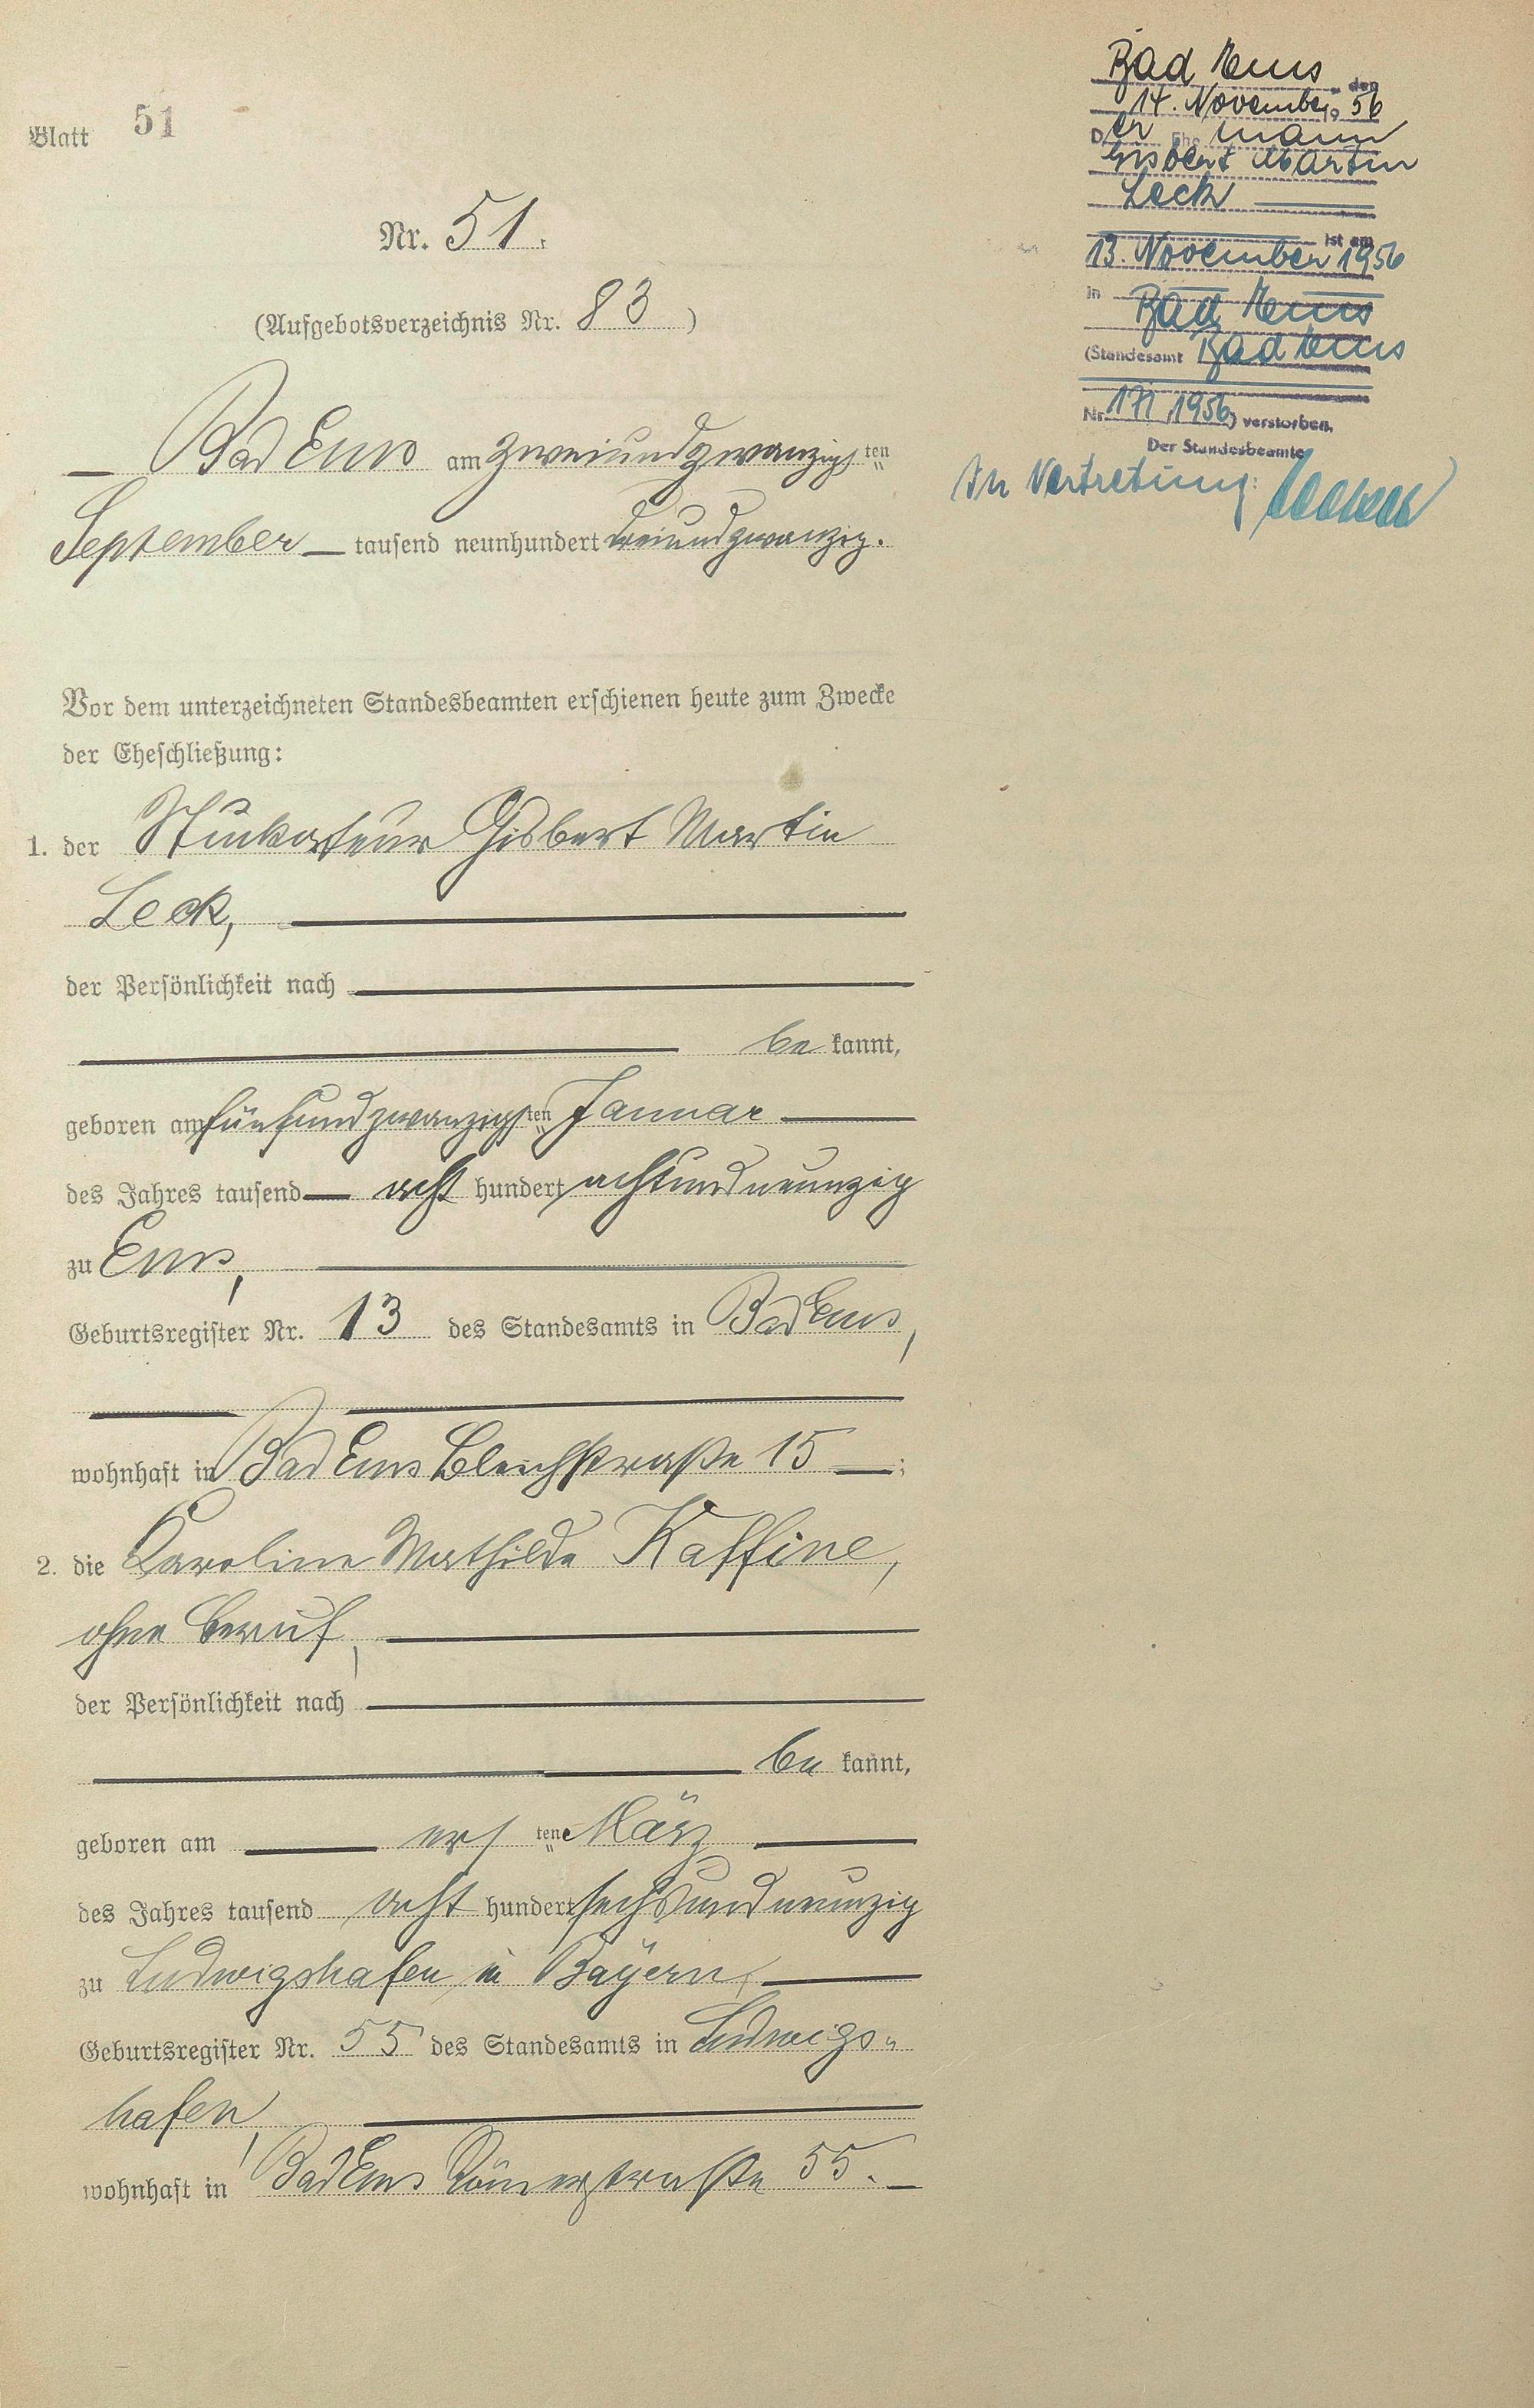 Blatt 51
Nr. 51.
(Aufgebotsverzeichnis Nr. 83)
Bad Ems am zweiundzwanzigsten
September tausend neunhundert dreiundzwanzig.
Vor dem unterzeichneten Standesbeamten erschienen heute zum Zwecke
der Eheschließung:
1. der Stuckateur Gisbert Martin
Leck,
der Persönlichkeit nach
be kannt,
geboren am fünfundzwanzigsten Januar
des Jahres tausend acht hundert achtundneunzig
zu Ems,
Geburtsregister Nr. 13 des Standesamts in Bad Ems,
wohnhaft in Bad Ems Bleichstraße 15;
2. die Karoline Mathilde Kaffine,
ohne Beruf,
der Persönlichkeit nach
be kannt,
geboren am ersten März
des Jahres tausend acht hundert sechsundneunzig
zu Ludwigshafen in Bayern,
Geburtsregister Nr. 55 des Standesamts in Ludwigs-
hafen,
wohnhaft in Bad Ems Römerstraße 55.
Bad Ems, den
14. November 1956
Der Ehemann
Gisbert Martin
Leck
ist am
13. November 1956
in Bad Ems
(Standesamt Bad Ems
Nr. 171/1956) verstorben.
Der Standesbeamte
In Vertretung: